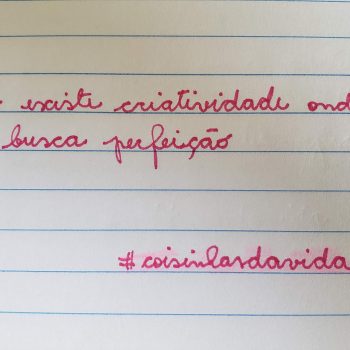 existe criatividade ond
busca perfeição
#coisinhasdavida